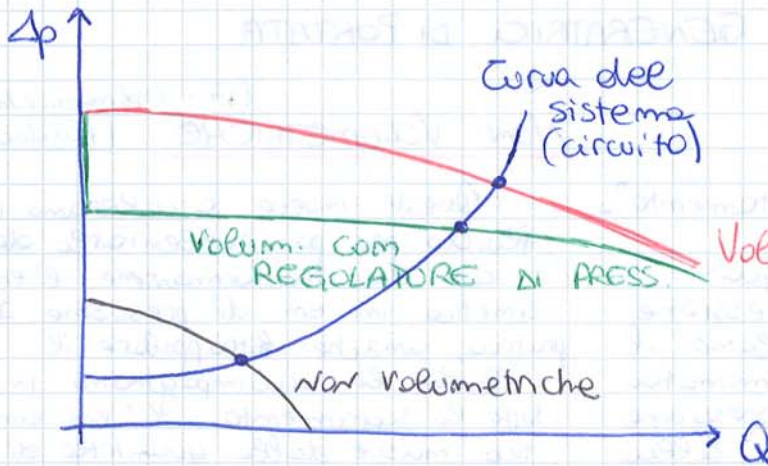 Δp
Curva del
sistema
(circuito)
Vol
Volum. con
REGOLATORE DI PRESS.
Non Volumetriche
Q